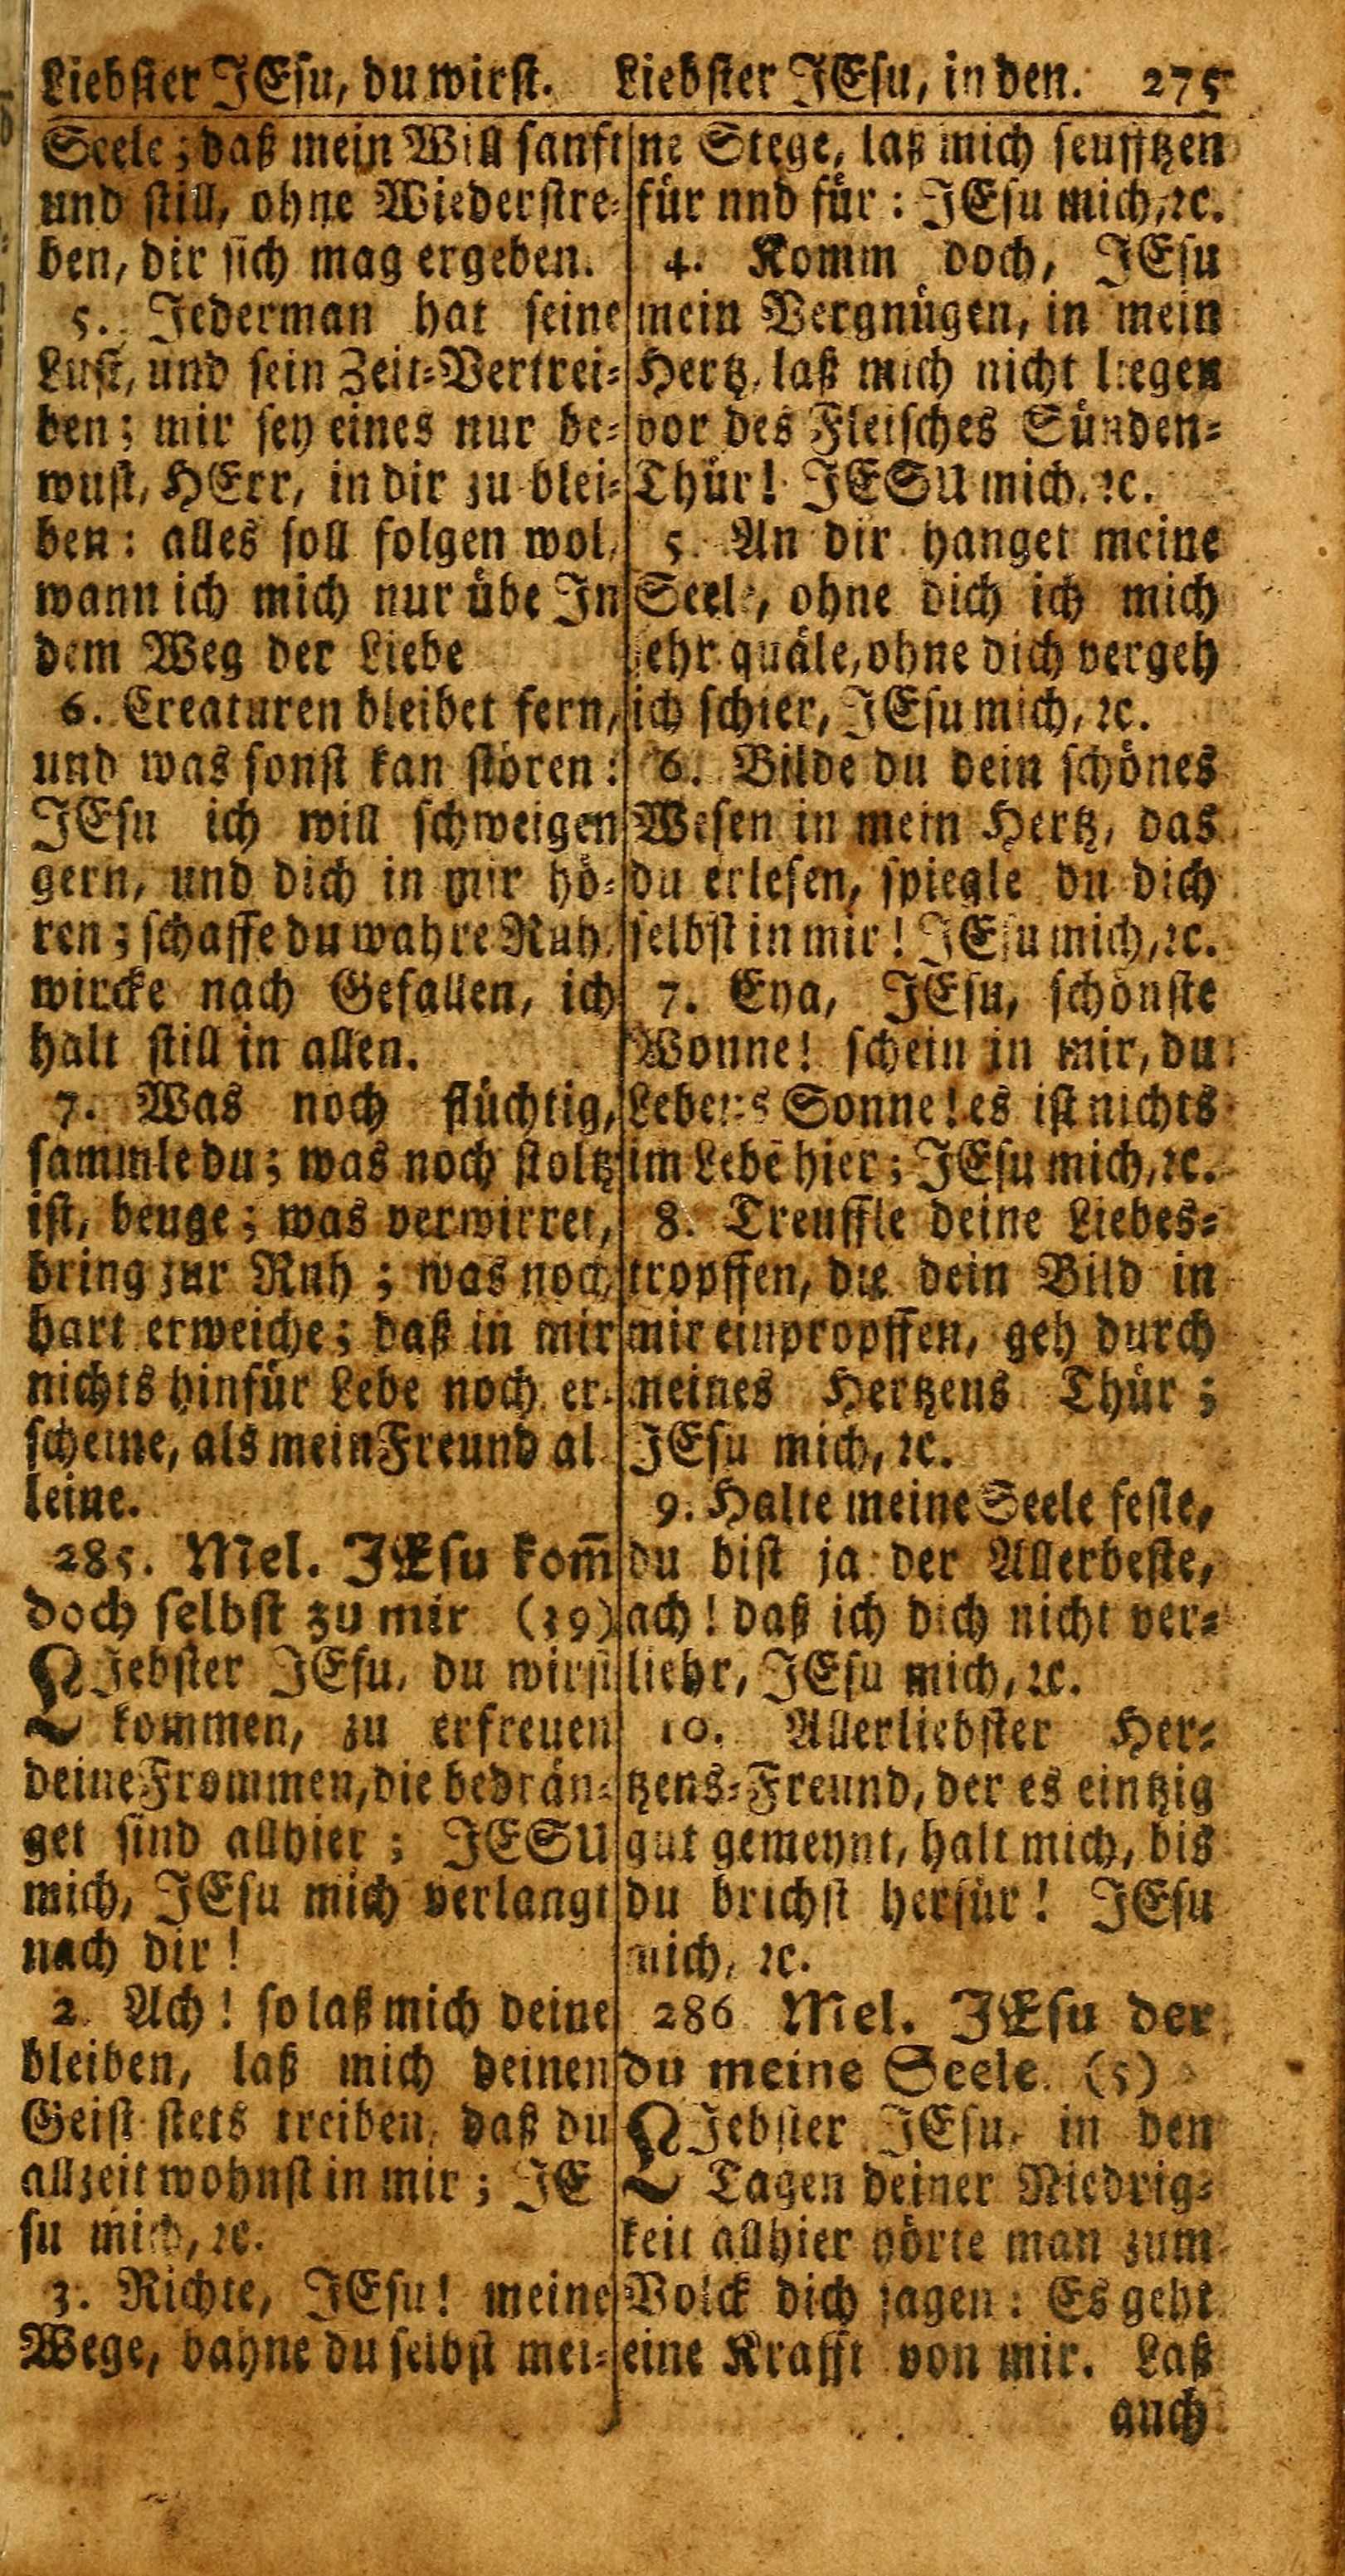 Liebster JEsu, du wirst. Liebster JEsu, in den. 275
Seele; daß mein Will sanft
und still, ohne Wiederstre-
ben, dir sich mag ergeben.
5. Jederman hat seine
Lust, und sein Zeit-Vertrei-
ben; mir sey eines nur be-
wust, HErr, in dir zu blei-
ben: alles soll folgen wol,
wann ich mich nur übe In
dem Weg der Liebe
6. Creaturen bleibet fern,
und was sonst kan stören:
JEsu ich will schweigen
gern, und dich in mir hö-
ren; schaffe du wahre Ruh,
wircke nach Gefallen, ich
halt still in allen.
7. Was noch flüchtig,
sammle du; was noch stoltz
ist, beuge; was verwirret,
bring zur Ruh; was noch
hart erweiche; daß in mir
nichts hinfür Lebe noch er-
scheine, als mein Freund al
leine.
285. Mel. JEsu kom̄
doch selbst zu mir (39)
LJebster JEsu, du wirst
kommen, zu erfreuen
deine Frommen, die bedrän-
get sind allhier; JESU
mich, JEsu mich verlangt
nach dir!
2. Ach! so laß mich deine
bleiben, laß mich deinen
Geist stets treiben, daß du
allzeit wohnst in mir; JE
su mich, ꝛc.
3. Richte, JEsu! meine
Wege, bahne du selbst mei-
ne Stege, laß mich seufftzen
für nnd für: JEsu mich, ꝛc.
4. Komm doch, JEsu
mein Vergnügen, in mein
Hertz, laß mich nicht liegen
vor des Fleisches Sünden-
Thür! JESU mich, ꝛc.
5. An dir hanget meine
Seele, ohne dich ich mich
sehr quäle, ohne dich vergeh
ich schier, JEsu mich, ꝛc.
6. Bilde du dein schönes
Wesen in mein Hertz, das
du erlesen, spiegle du dich
selbst in mir! JEsu mich, ꝛc.
7. Eya, JEsu, schönste
Wonne! schein in mir, du
Lebens Sonne! es ist nichts
im Lebē hier; JEsu mich, ꝛc.
8. Treuffle deine Liebes-
tropffen, die dein Bild in
mir einpropffen, geh durch
meines Hertzens Thür;
JEsu mich, ꝛc.
9. Halte meine Seele feste,
du bist ja der Allerbeste,
ach! daß ich dich nicht ver-
liehr, JEsu mich, ꝛc.
10. Allerliebster Her-
tzens-Freund, der es eintzig
gut gemeynt, halt mich, bis
du brichst herfür! JEsu
mich, ꝛc.
286 Mel. JEsu der
du meine Seele. (5)
LJebster JEsu, in den
Tagen deiner Niedrig-
keit allhier hörte man zum
Volck dich sagen: Es geht
eine Krafft von mir. Laß
auch